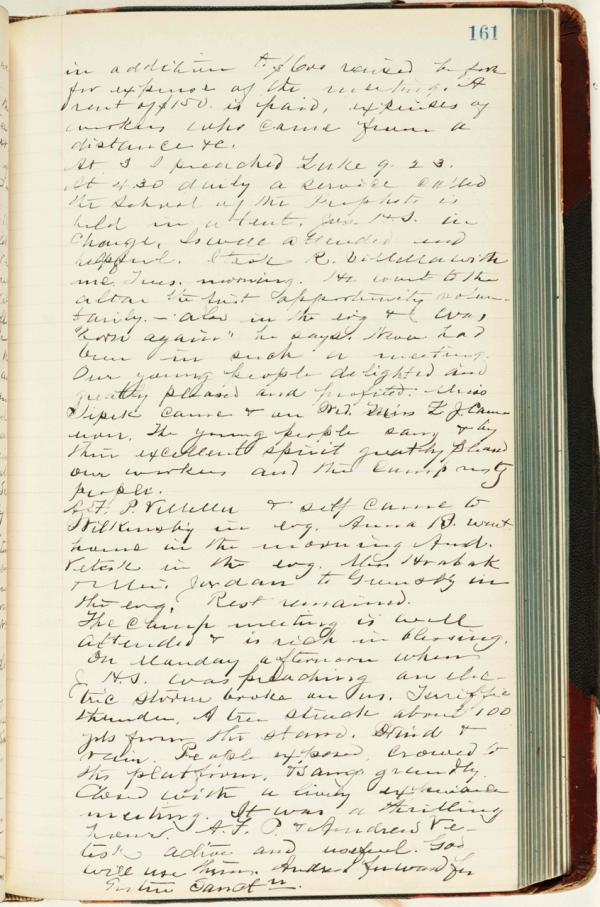 161
in addition to $600 raised before
for expense of the meeting. A
rent of $150. is paid, expenses of
workers who came from a
distance &c.
At 3 I preached Luke 9. 23.
At 4.30 daily a service called
the School of the Prophets is
held in a tent. Jos. H.S. in
charge, Is well attended and
helpful. I took R. with
me Tues. morning. He went to the
altar the first opportunity volun-
tarily. - also in the evg & was,
"born again" he says. Never had
been in such a meeting.
Our young people delighted and
greatly pleased and profited. Miss
came & on Wed. Miss L J Came
The young people sang & by
their excellent spirit greatly pleased
our workers and the camp mtg
people.
A.F. P. & self came to
in evg. Anna B. went
home in the morning And.
in the evg. Miss Hrabak
Jordan to in
the evg. Rest remained.
The camp meeting is well
attended & is rich in blessing.
On Monday afternoon when
J H.S. was preaching an elec-
tric storm broke on us. Terrific
thunder. A tree struck about 100
yds from the stand. Wind &
rain. People exposed, crowed to
the platform, sang grandly.
Closed with a lively experience
meeting. It was a thrilling
hour. A.F. P. & Andrew
active and useful. God
will use them. Andrew forward for
entire Sanctn.